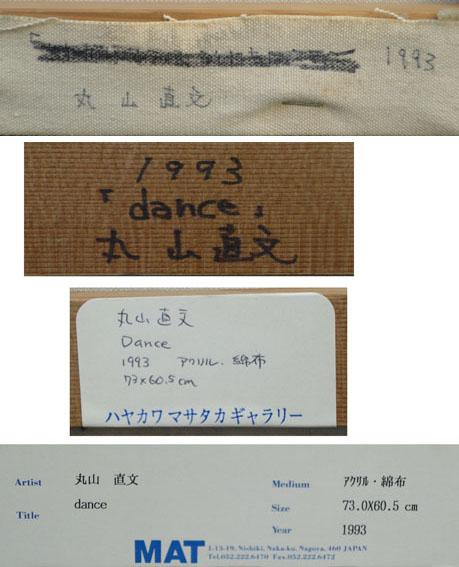 1993
丸山直文
1993
「dance」
丸山直文
丸山直文
Dance
1993 アクリル、綿布
73×60.5cm
ハヤカワマサタカギャラリー
Artist 丸山 直文
Title dance
Medium アクリル・綿布
Size 73.0X60.5 cm
Year 1993
MAT
1-13-19, Nishiki, Naka-ku, Nagoya, 460 JAPAN
Tel.052.222.6470 Fax.052.222.6472